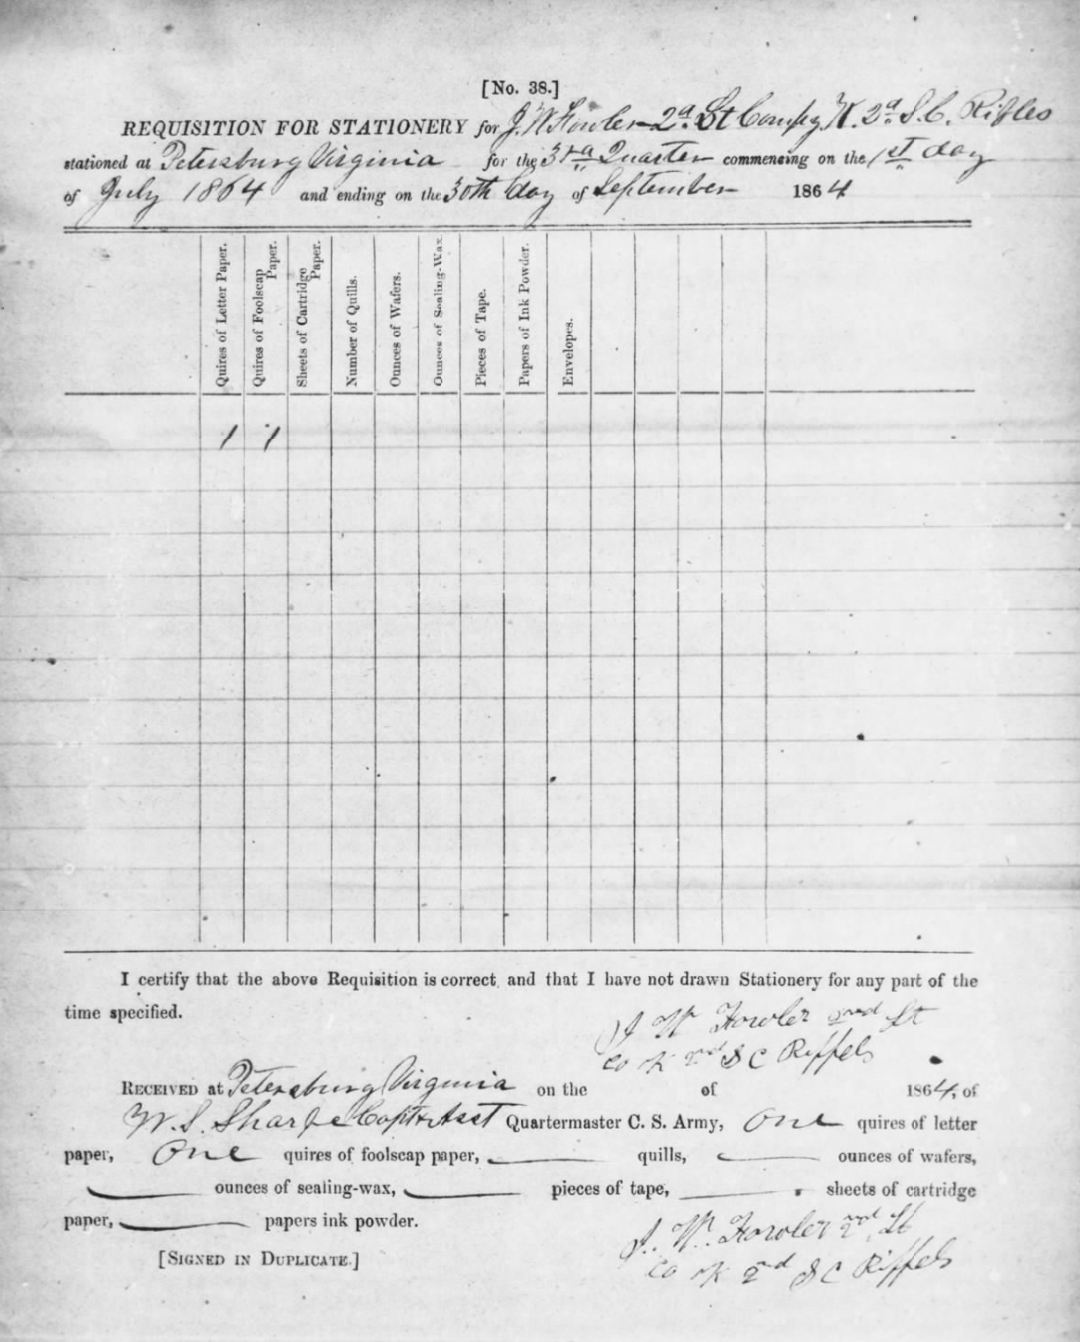 [No. 38.]
REQUISITION FOR STATIONERY for J. W. Fowler 2d. Lt Compy K. 2d. S. C. Rifles
stationed at Petersburg Virginia for the 3rd Quarter commencing on the 1st day
of July 1864 and ending on the 30th day of September 1864
Quires of Letter Paper.
Quires of Foolscap Paper.
Sheets of Cartridge Paper.
Number of Quills.
Ounces of Wafers.
Ounces of Sealing-Wax
Pieces of Tape.
Papers of Ink Powder.
Envelopes.
1 1
I certify that the above Requisition is correct, and that I have not drawn Stationery for any part of the
time specified.
J W Fowler 2nd Lt
Co K 2nd S C Riffels
RECEIVED at Petersburg Virginia on the of 1864, of
W. S. Sharpe Capt & Asst Quartermaster C. S. Army, One quires of letter
paper, One quires of foolscap paper, quills, ounces of wafers,
ounces of sealing-wax, pieces of tape, sheets of cartridge
paper, papers ink powder.
J. W. Fowler 2nd Lt
[SIGNED IN DUPLICATE.]
Co K 2nd S C Riffels